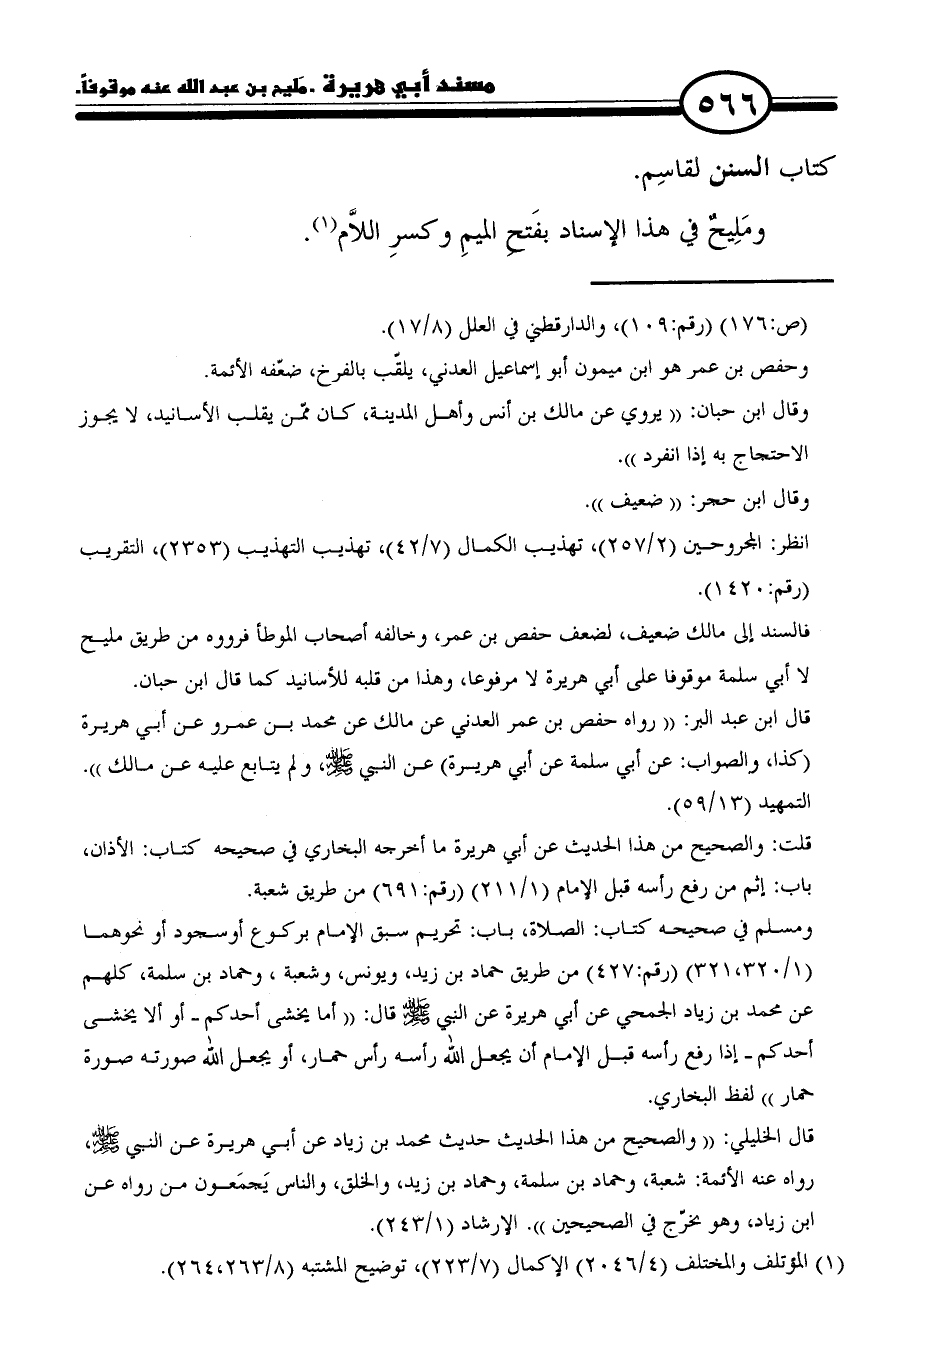 مسند أبي هريرة .مَليح بن عبد الله عنه موقوفاً.
٥٦٦
كتاب السنن لقاسِم.
ومَلِيحٌ في هذا الإسناد بفَتحِ الميمِ وكسرِ اللاَّم(١).
(ص:١٧٦) (رقم:١٠٩)، والدارقطني في العلل (١٧/٨).
وحفص بن عمر هو ابن ميمون أبو إسماعيل العدني، يلقّب بالفرخ، ضعّفه الأئمة.
وقال ابن حبان: (( يروي عن مالك بن أنس وأهل المدينة، كان ممّن يقلب الأسانيد، لا يجوز
الاحتجاج به إذا انفرد )).
وقال ابن حجر: (( ضعيف )).
انظر: المجروحين (٢٥٧/٢)، تهذيب الكمال (٤٢/٧)، تهذيب التهذيب (٢٣٥٣)، التقريب
(رقم:١٤٢٠).
فالسند إلى مالك ضعيف، لضعف حفص بن عمر، وخالفه أصحاب الموطأ فرووه من طريق مليح
لا أبي سلمة موقوفا على أبي هريرة لا مرفوعا، وهذا من قلبه للأسانيد كما قال ابن حبان.
قال ابن عبد البر: (( رواه حفص بن عمر العدني عن مالك عن محمد بن عمرو عن أبي هريرة
(كذا، والصواب: عن أبي سلمة عن أبي هريرة) عن النبي ﷺ، ولم يتابع عليه عن مالك )).
التمهيد (٥٩/١٣).
قلت: والصحيح من هذا الحديث عن أبي هريرة ما أخرجه البخاري في صحيحه كتاب: الأذان،
باب: إثم من رفع رأسه قبل الإمام (٢١١/١) (رقم:٦٩١) من طريق شعبة.
ومسلم في صحيحه كتاب: الصلاة، باب: تحريم سبق الإمام بركوع أوسجود أو نحوهما
(٣٢١،٣٢٠/١) (رقم:٤٢٧) من طريق حماد بن زيد، ويونس، وشعبة ، وحماد بن سلمة، كلهم
عن محمد بن زياد الجمحي عن أبي هريرة عن النبي ﷺ قال: (( أما يخشى أحدكم ـ أو ألا يخشى
أحدكم ـ إذا رفع رأسه قبل الإمام أن يجعل الله رأسه رأس حمار، أو يجعل الله صورته صورة
حمار )) لفظ البخاري.
قال الخليلي: (( والصحيح من هذا الحديث حديث محمد بن زياد عن أبي هريرة عن النبي ﷺ،
رواه عنه الأئمة: شعبة، وحماد بن سلمة، وحماد بن زيد، والخلق، والناس يَجمَعون من رواه عن
ابن زياد، وهو مخرّج في الصحيحين )). الإرشاد (٢٤٣/١).
(١) المؤتلف والمختلف (٢٠٤٦/٤) الإكمال (٢٢٣/٧)، توضيح المشتبه (٢٦٤،٢٦٣/٨).